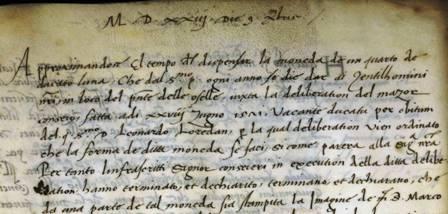 M. D. XXIIJ. Die 9. Xbris
Approximandose el tempo de dispensar la moneda de un quarto de
ducato luna. Che dal s.mo p. ogni anno se die dar di Zentilhomini
nri in loco del pnte delle oselle, iuxta la deliberation del mazor
conseio fatta adi XXIIIJ Iugno 1521. Vacante ducatu per obitum
del q. s.mo D. Leonardo Loredan, p la qual deliberation vien ordinato
che la forma de ditta moneda se faci si come parera alla Sig.ria nra
Per tanto Infrascritti Signor conseieri in execution della ditta delibe
ration: hanno terminato, et dechiarito, terminano, et dechiarano, che
da una parte de tal moneda sia stampita la Imagine de m. D. Marco